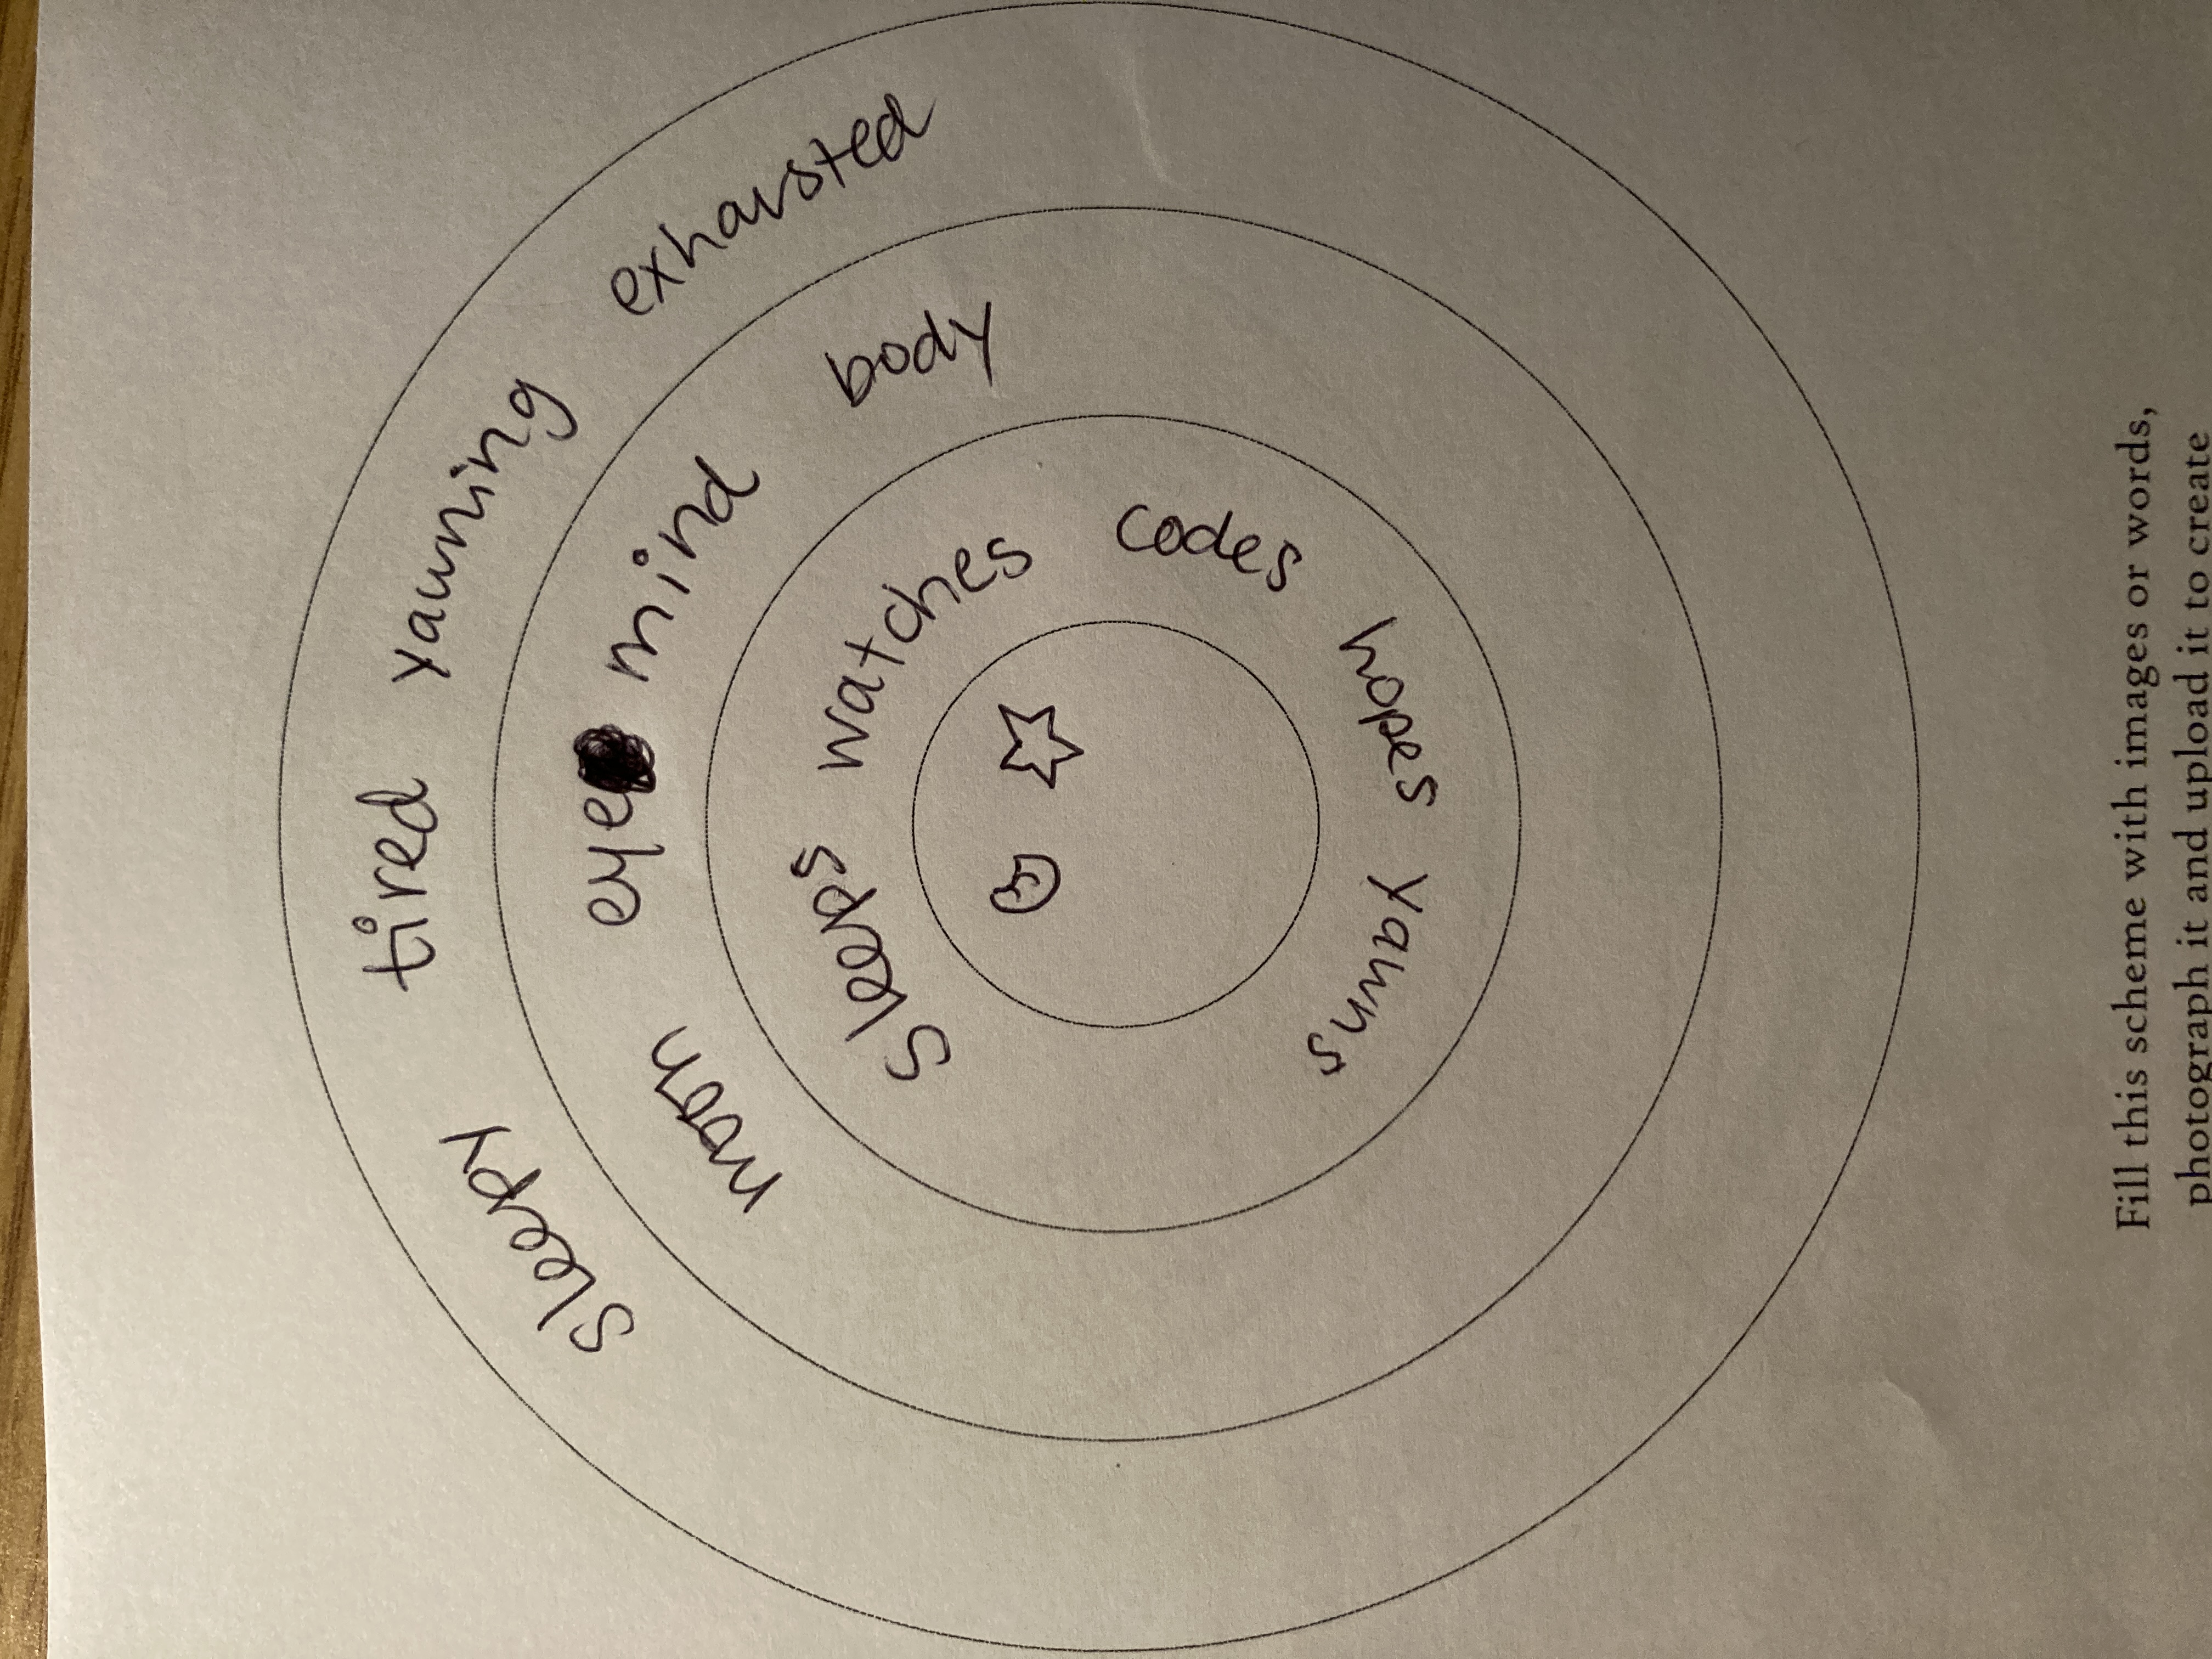 sleepy tired yawning exhausted
moon eye mind body
sleeps watches codes hopes yawns
Fill this scheme with images or words,
photograph it and upload it to create